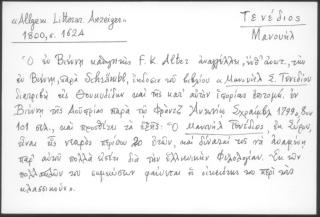 «Allgem. Litterar. Anzeiger»
1800, σ. 1624
Τενέδιος
Μανουήλ
Ὁ ἐν Βιέννῃ καθηγητὴς F. K. Alter ἀναγγέλλει, ὑπ' ὄψει, τὴν
ἐν Βιέννῃ, παρὰ Schrämbl, ἔκδοσιν τοῦ βιβλίου «Μανουὴλ Σ. Τενεδίου
διατριβὴ εἰς Θουκυδίδην καὶ τῆς κατ' αὐτὸν ἱστορίας ἐπιτομή. ἐν
Βιέννῃ τῆς Αὐστρίας παρὰ τῷ Φρὰντζ Ἀντωνίῳ Σχραίμβλ 1799, 8ον
101 σελ., καὶ προσθέτει τὰ ἑξῆς: «Ὁ Μανουὴλ Τενέδιος, ἐκ Σμύρνης,
εἶναι εἷς νεαρὸς περίπου 20 ἐτῶν, καὶ δύναταί τις νὰ ἀναμένῃ
παρ' αὐτοῦ πολλὰ ὡσέτι διὰ τὴν ἑλληνικὴν Φιλολογίαν. Ἐκ τῶν
πολλαπλῶν του σημειώσεων φαίνεται ἡ οἰκειότης του περὶ τοὺς
κλασσικούς».